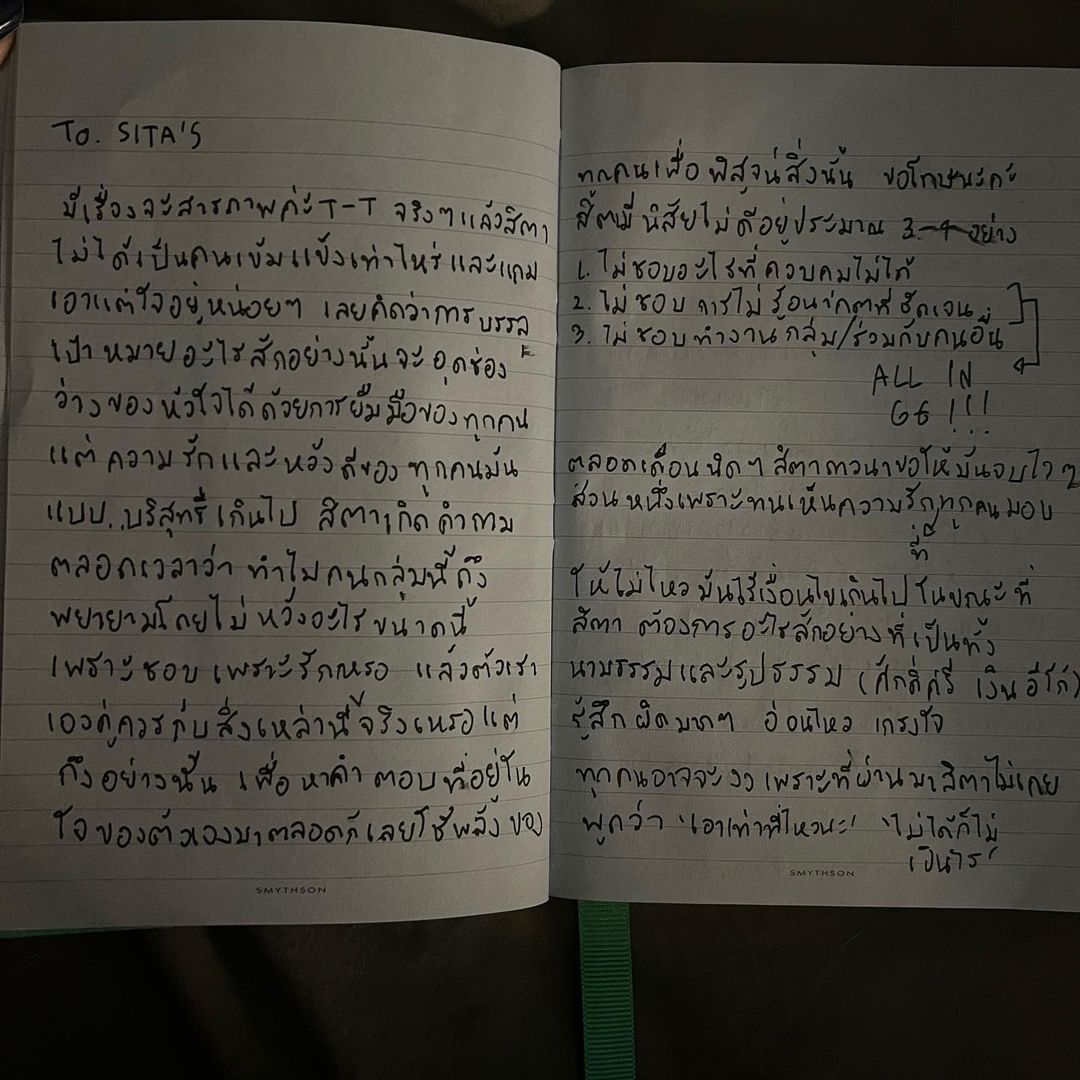 To. SITA'S
มีเรื่องจะสารภาพค่ะ T-T จริงๆแล้วสิตา
ไม่ได้เป็นคนเข้มแข็งเท่าไหร่และแถม
เอาแต่ใจอยู่หน่อยๆ เลยคิดว่าการบรรลุ
เป้าหมายอะไรสักอย่างนั้นจะอุดช่อง
ว่างของหัวใจได้ด้วยการยืมมือของทุกคน
แต่ความรักและหวังดีของทุกคนมัน
แบบ..บริสุทธิ์เกินไป สิตาเกิดคำถาม
ตลอดเวลาว่า ทำไมคนกลุ่มนี้ถึง
พยายามโดยไม่หวังอะไรขนาดนี้
เพราะชอบ เพราะรักเหรอ แล้วตัวเรา
เองคู่ควรกับสิ่งเหล่านี้จริงเหรอ แต่
ถึงอย่างนั้น เพื่อหาคำตอบที่อยู่ใน
ใจของตัวเองมาตลอดก็เลยใช้พลังของ
SMYTHSON
ทุกคนเพื่อพิสูจน์สิ่งนั้น ขอโทษนะคะ
สิตามีนิสัยไม่ดีอยู่ประมาณ 3-4 อย่าง
1. ไม่ชอบอะไรที่ควบคุมไม่ได้
2. ไม่ชอบการไม่รู้อนาคตที่ชัดเจน
3. ไม่ชอบทำงานกลุ่ม/ร่วมกับคนอื่น
ALL IN
GG!!!
ตลอดเดือนนิดๆ สิตาภาวนาขอให้มันจบไวๆ
ส่วนหนึ่งเพราะทนเห็นความรักทุกคนมอบ
ที่
ให้ไม่ไหว มันไร้เงื่อนไขเกินไป ในขณะที่
สิตาต้องการอะไรสักอย่างที่เป็นทั้ง
นามธรรมและรูปธรรม (ศักดิ์ศรี เงิน อีโก้)
รู้สึกผิดมากๆ อ่อนไหว เกรงใจ
ทุกคนอาจจะงง เพราะที่ผ่านมาสิตาไม่เคย
พูดว่า 'เอาเท่าที่ไหวนะ' 'ไม่ได้ก็ไม่
เป็นไร'
SMYTHSON